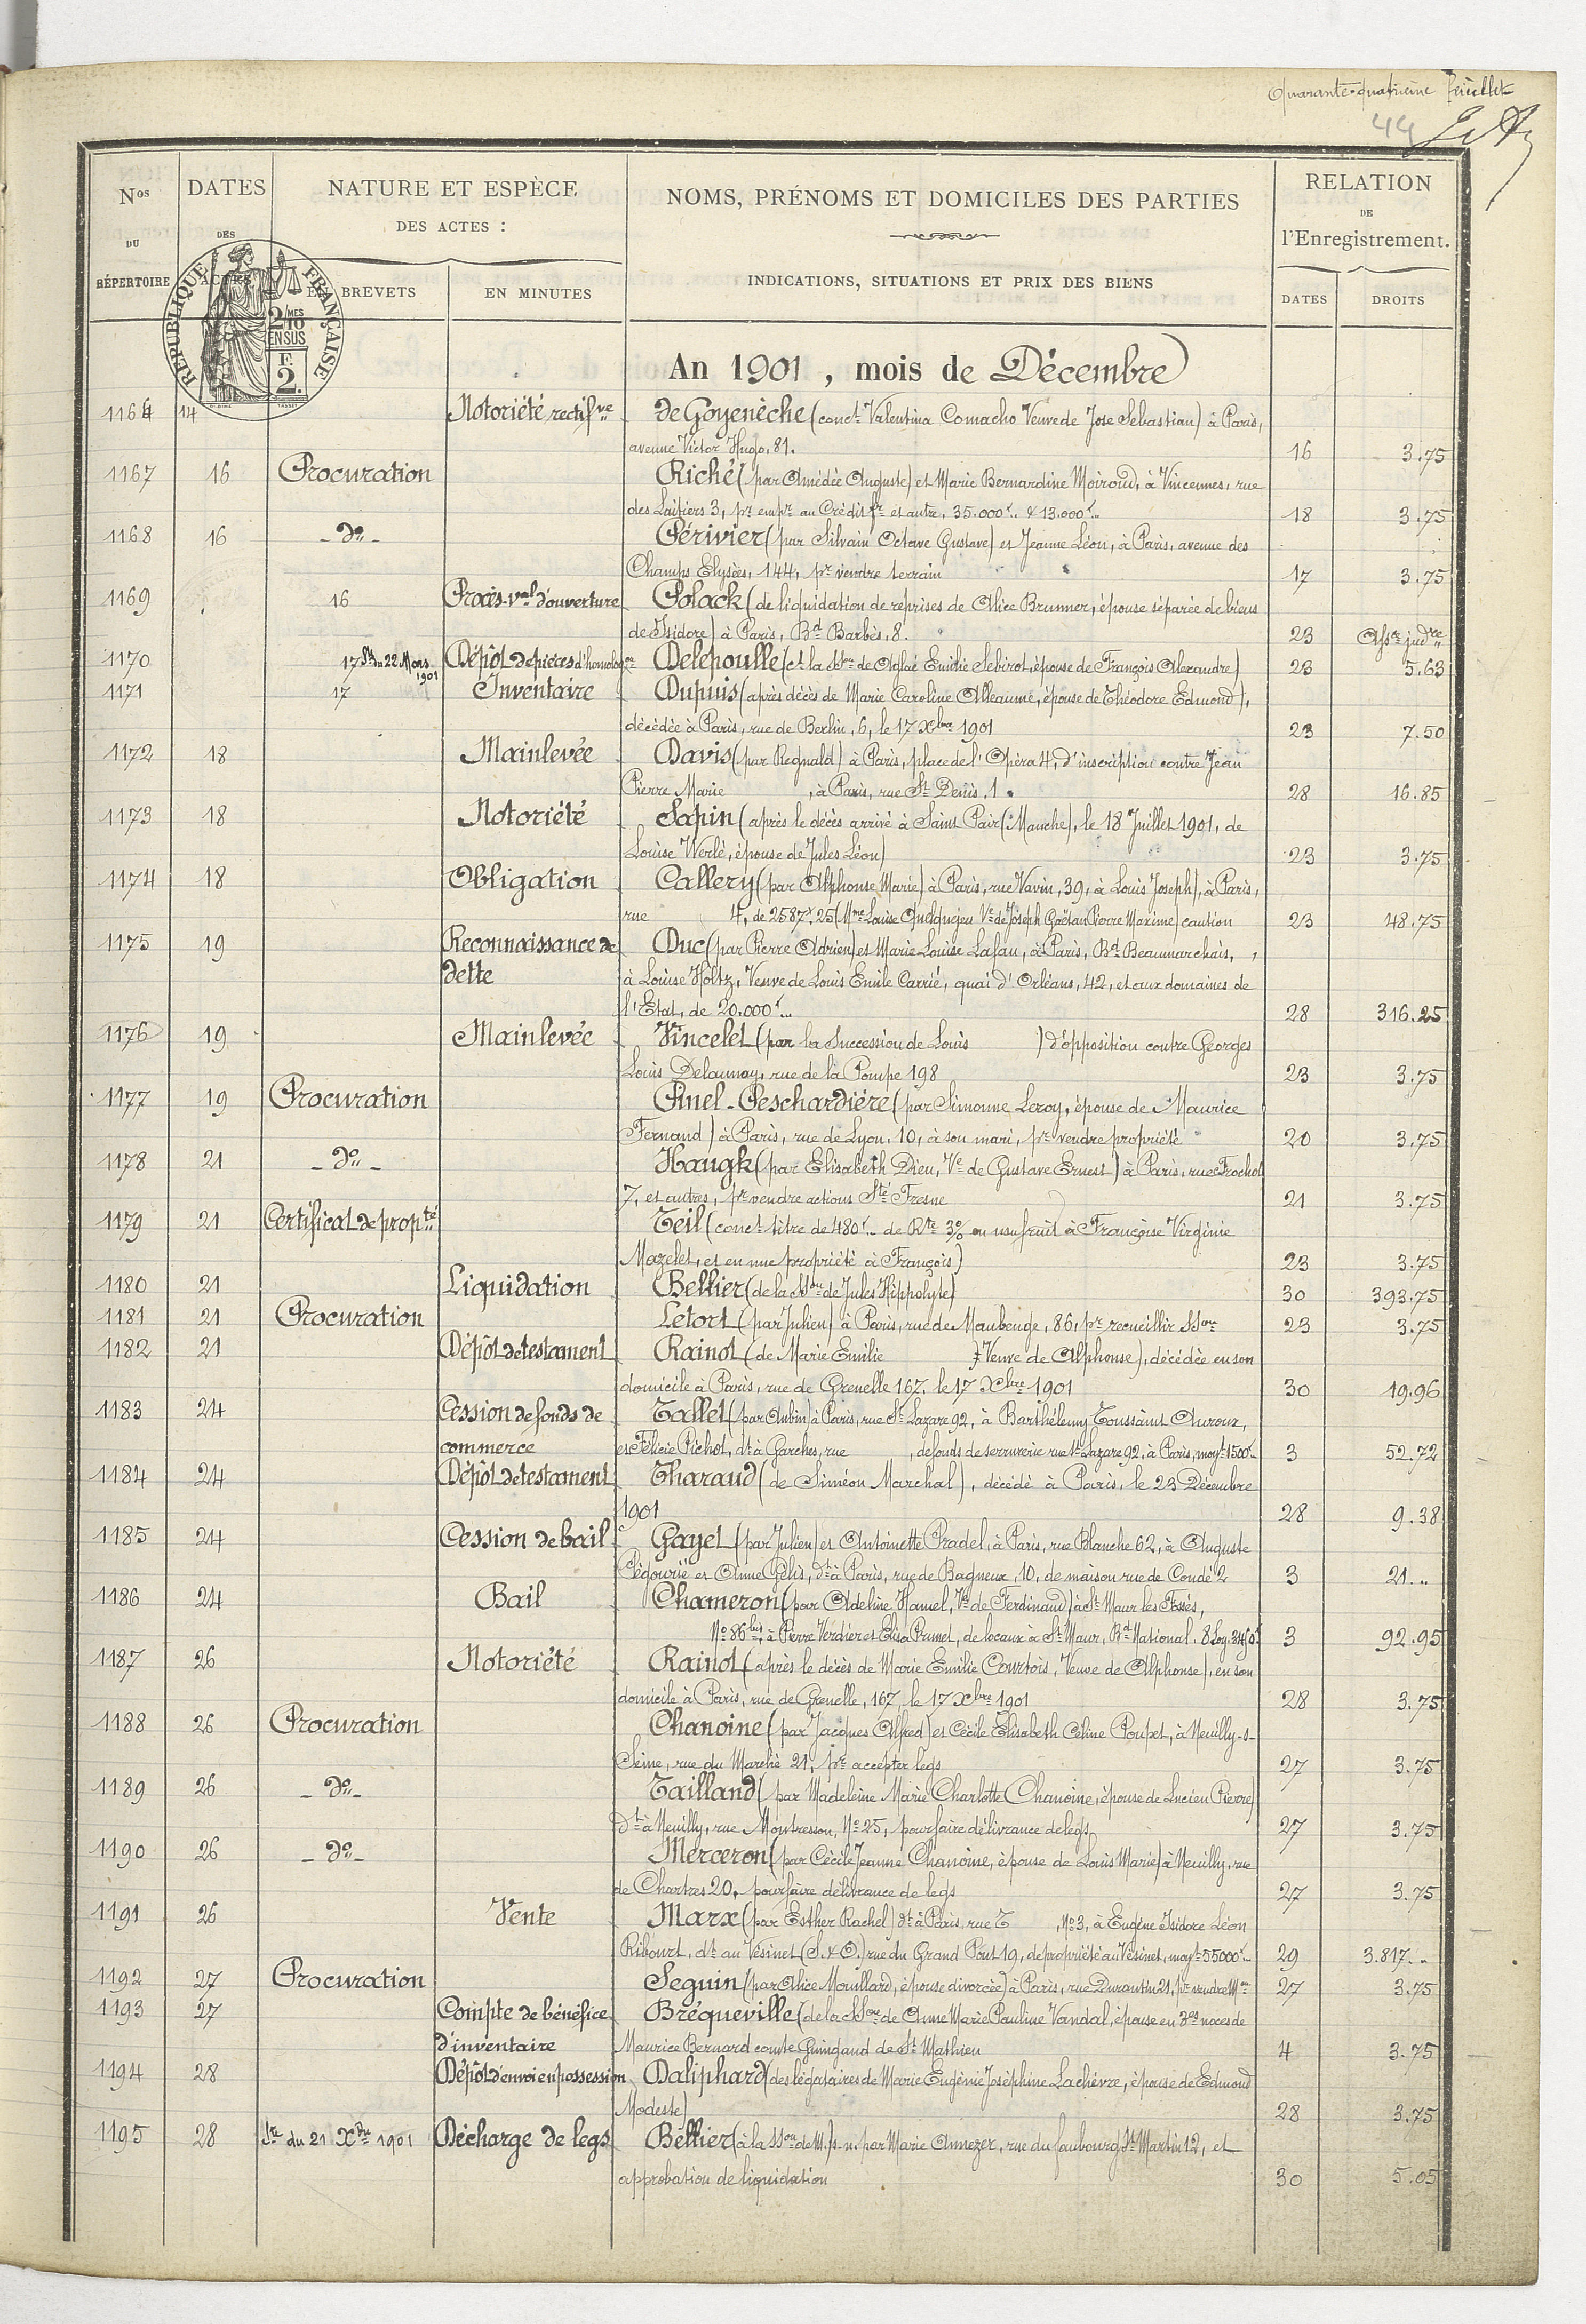 Quarante-quatrième feuillet
44
Nos DU RÉPERTOIRE
DATES DES ACTES
NATURE ET ESPÈCE
DES ACTES :
EN BREVETS
EN MINUTES
NOMS, PRÉNOMS ET DOMICILES DES PARTIES
INDICATIONS, SITUATIONS ET PRIX DES BIENS
RELATION
DE
l'Enregistrement.
DATES
DROITS
RÉPUBLIQUE FRANÇAISE
2/10 MES
EN SUS
F.
2.
An 1901, mois de Décembre
1164 14 Notoriété rectifve de Goyenèche (conct Valentina Comacho Veuve de Jose Sebastian) à Paris,
avenue Victor Hugo, 81. 16 3.75
1167 16 Procuration Riché (par Amédée Auguste) et Marie Bernardine Moiroud, à Vincennes, rue
des Laitiers 3, pr empr au Crédit fr et autre, 35.000f.. & 13.000f.. 18 3.75
1168 16 - do - Périvier (par Silvain Octave Gustave) et Jeanne Léon, à Paris, avenue des
Champs Elysées, 144, pr vendre terrain 17 3.75
1169 16 Procès-val d'ouverture Polack (de liquidation de reprises de Alice Brunner, épouse séparée de biens
de Isidore) à Paris, Bd Barbès, 8. 23 Assce judre
1170 17 Ste du 22 Mars 1901 Dépôt de pièces d'homologon Delepoulle (ct la Sson de Aglaé Emilie Sebirot, épouse de François Alexandre) 23 5.63
1171 17 Inventaire Dupuis (après décès de Marie Caroline Alleaume, épouse de Théodore Edmond),
décédée à Paris, rue de Berlin, 6, le 17 Xbre 1901 23 7.50
1172 18 Mainlevée Davis (par Regnald) à Paris, place de l'Opéra 4, d'inscription contre Jean
Pierre Marie , à Paris, rue St Denis, 1. 28 16.85
1173 18 Notoriété Sapin (après le décès arrivé à Saint Pair (Manche), le 18 Juillet 1901, de
Louise Werlé, épouse de Jules Léon) 23 3.75
1174 18 Obligation Callery (par Alphonse Marie) à Paris, rue Vavin, 39, à Louis Joseph), à Paris,
rue 4, de 2587f,25 (Mme Louise Quelquejeu Ve de Joseph Gaëtan Pierre Maxime) caution 23 48.75
1175 19 Reconnaissance de Duc (par Pierre Adrien) et Marie Louise Lafau, à Paris, Bd Beaumarchais, ,
dette à Louise Höltz, Veuve de Louis Emile Carrié, quai d'Orléans, 42, et aux domaines de
l'Etat, de 20.000f... 28 316.25
1176 19 Mainlevée Vincelet (par la Succession de Louis ) d'opposition contre Georges
Louis Delaunay, rue de la Pompe 198 23 3.75
1177 19 Procuration Pinel-Peschardière (par Simonne Leroy, épouse de Maurice
Fernand) à Paris, rue de Lyon, 10, à son mari, pr vendre propriété 20 3.75
1178 21 - do - Haugk (par Elisabeth Dieu, Ve de Gustave Ernest) à Paris, rue Frochot
7, et autres, pr vendre actions Sté Fresne 21 3.75
1179 21 Certificat de propté Teil (conct titre de 480f.. de Rte 3% en usufruit à Françoise Virginie
Mazelet, et en nue propriété à François) 23 3.75
1180 21 Liquidation Bellier (de la Sson de Jules Hippolyte) 30 393.75
1181 21 Procuration Letort (par Julien) à Paris, rue de Maubeuge, 86, pr recueillir SSon 23 3.75
1182 21 Dépôt de testament Rainot (de Marie Emilie Veuve de Alphonse), décédée en son
domicile à Paris, rue de Grenelle 167, le 17 Xbre 1901 30 19.96
1183 24 Cession de fonds de Tallet (par Aubin) à Paris, rue St Lazare 92, à Barthélemy Toussaint Auroux,
commerce et Félicie Pichot, dt à Garches, rue , de fonds de serrurerie rue St Lazare 92, à Paris, moyt 1500f.. 3 52.72
1184 24 Dépôt de testament Tharaud (de Siméon Marchal), décédé à Paris, le 23 Décembre
1901 28 9.38
1185 24 Cession de bail Gayet (par Julien) et Antoinette Pradel, à Paris, rue Blanche 62, à Auguste
Ségourie et Anne Gelis, dt à Paris, rue de Bagneux, 10, de maison rue de Condé 2 3 21...
1186 24 Bail Chameron (par Adeline Hamel, Ve de Ferdinand) à St Maur les Fossés,
No 86 bis, à Pierre Verdier et Elisa Prunet, de locaux à St Maur, Bd National. 3 92.95
1187 26 Notoriété Rainot (après le décès de Marie Emilie Courtois, Veuve de Alphonse), en son
domicile à Paris, rue de Grenelle, 167, le 17 Xbre 1901 28 3.75
1188 26 Procuration Chanoine (par Jacques Alfred) et Cécile Elisabeth Céline Poupet, à Neuilly-s-
Seine, rue du Marché 21, pr accepter legs 27 3.75
1189 26 - do - Tailland (par Madeleine Marie Charlotte Chanoine, épouse de Lucien Pierre)
dt à Neuilly, rue Montrosson, No 25, pour faire délivrance de legs 27 3.75
1190 26 - do - Merceron (par Cécile Jeanne Chanoine, épouse de Louis Marie) à Neuilly, rue
de Chartres 20, pour faire délivrance de legs 27 3.75
1191 26 Vente Marx (par Esther Rachel) dt à Paris, rue T , No 3, à Eugène Isidore Léon
Ribourt, dt au Vésinet (S. & O.) rue du Grand Pont 19, de propriété au Vésinet, moyt 55000f.. 29 3.817..
1192 27 Procuration Seguin (par Alice Mouillard, épouse divorcée) à Paris, rue Durantin 21, pr vendre Mon 27 3.75
1193 27 Compte de bénéfice Bréqueville (de la SSon de Anne Marie Pauline Vandal, épouse en 3es noces de
d'inventaire Maurice Bernard comte Guingand de St Mathieu 4 3.75
1194 28 Dépôt d'envoi en possession Daliphard (des légataires de Marie Eugénie Joséphine Lachèvre, épouse de Edmond
Modeste) 28 3.75
1195 28 Ste du 21 Xbre 1901 Décharge de legs Bellier (à la SSon de M.) s.n. par Marie Annezer, rue du faubourg St Martin 12, et
approbation de liquidation 30 5.05